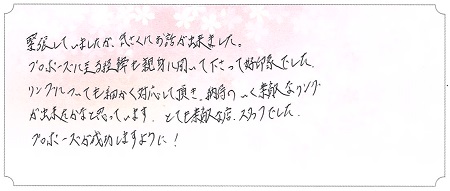 緊張していましたが、気さくにお話が出来ました。
プロポーズに至る経緯も親身に聞いて下さって好印象でした。
リングについても細かく対応して頂き、納得のいく素敵なリング
が出来たかなと思っています。とても素敵な店、スタッフでした。
プロポーズが成功しますように！